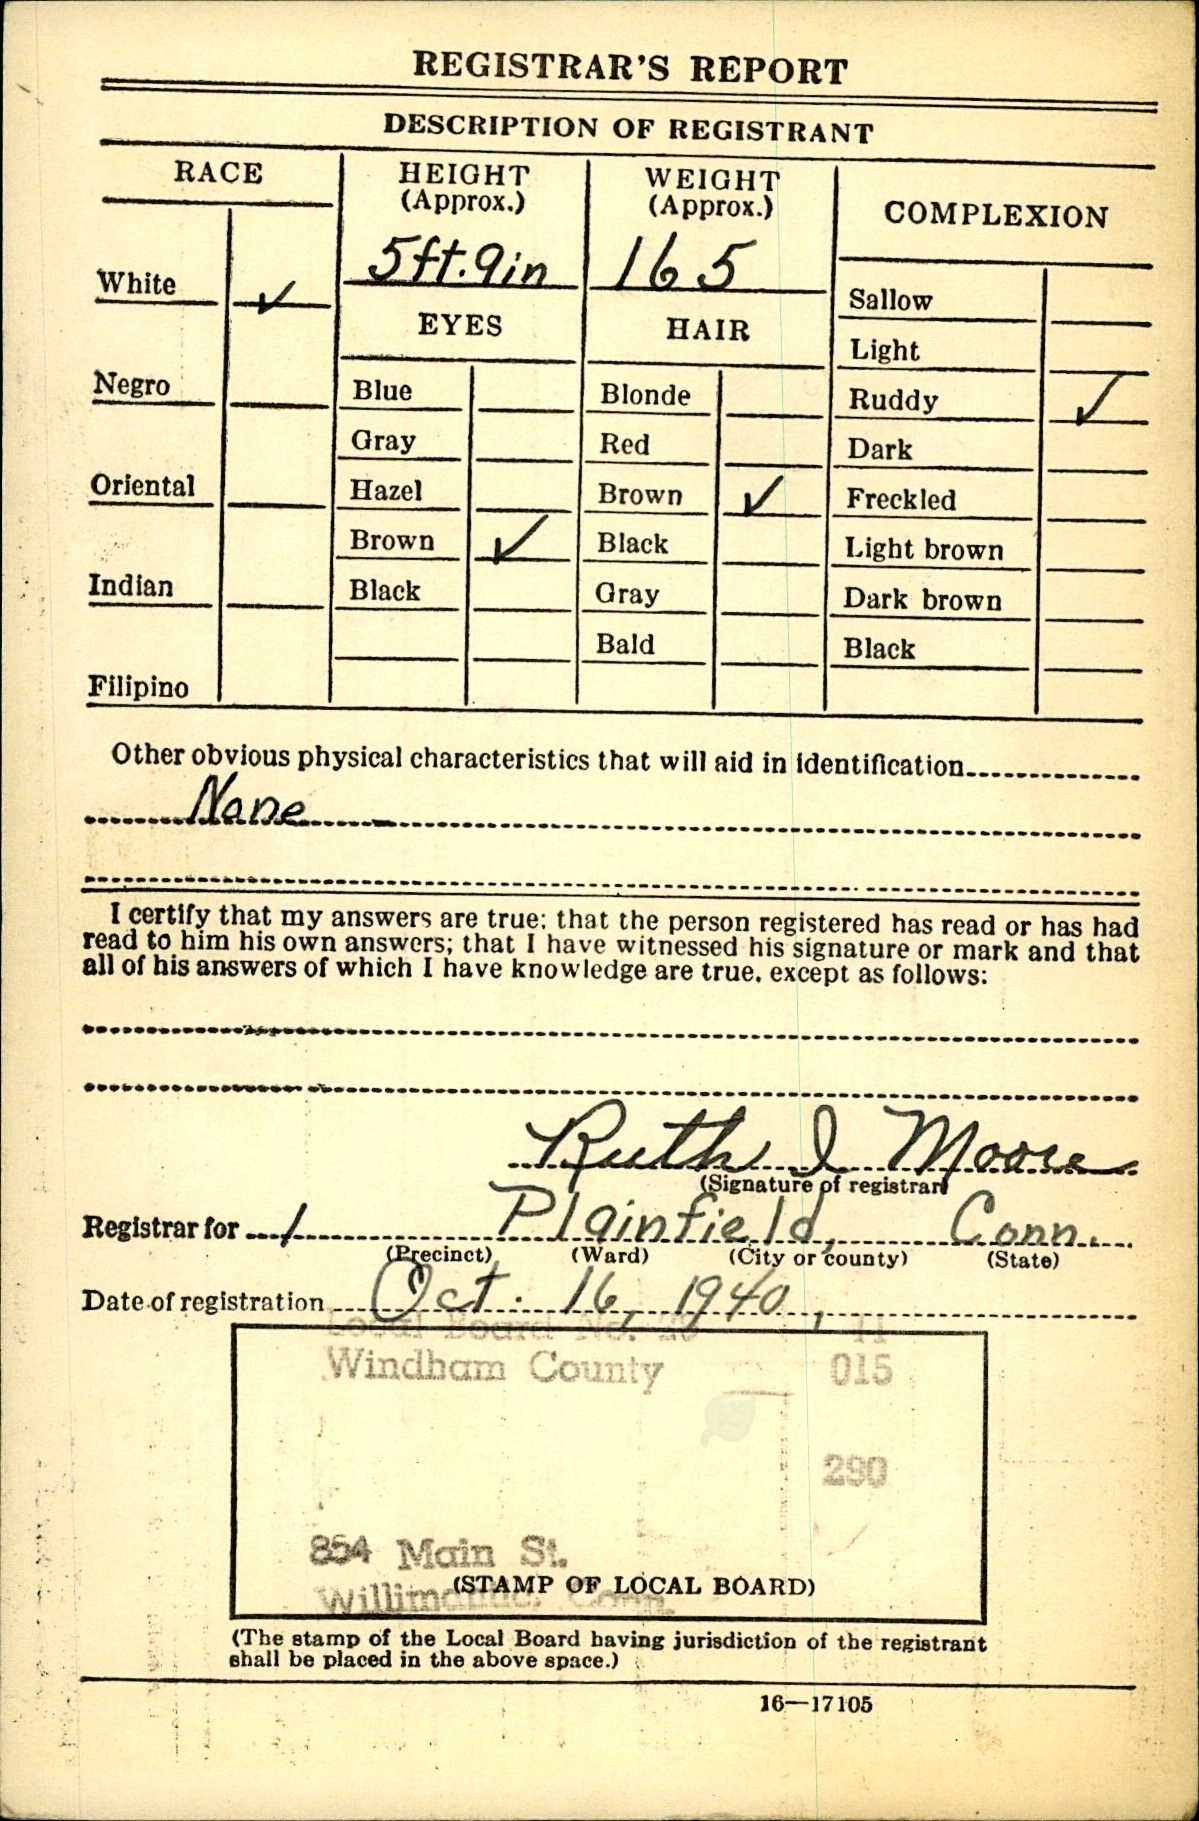 REGISTRAR'S REPORT
DESCRIPTION OF REGISTRANT
RACE
White ✓
Negro
Oriental
Indian
Filipino
HEIGHT
(Approx.)
5ft. 9in
WEIGHT
(Approx.)
165
EYES
Blue
Gray
Hazel
Brown ✓
Black
HAIR
Blonde
Red
Brown ✓
Black
Gray
Bald
COMPLEXION
Sallow
Light
Ruddy ✓
Dark
Freckled
Light brown
Dark brown
Black
Other obvious physical characteristics that will aid in identification
None
I certify that my answers are true; that the person registered has read or has had
read to him his own answers; that I have witnessed his signature or mark and that
all of his answers of which I have knowledge are true, except as follows:
Ruth I Moore
(Signature of registrar)
Registrar for 1 Plainfield, Conn.
(Precinct) (Ward) (City or county) (State)
Date of registration Oct. 16, 1940,
Local Board No. 11
Windham County 015
290
854 Main St.
(STAMP OF LOCAL BOARD)
Willimantic, Conn.
(The stamp of the Local Board having jurisdiction of the registrant
shall be placed in the above space.)
16—17105